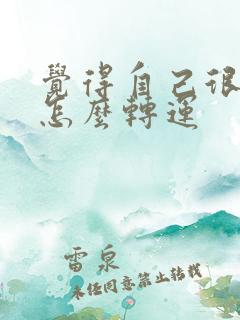 覺得自己很
怎麼轉運
雷泉
未經同意禁止轉載